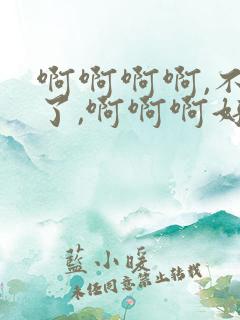 啊啊啊啊,不
了,啊啊啊好
藍小暖
未经同意禁止转载